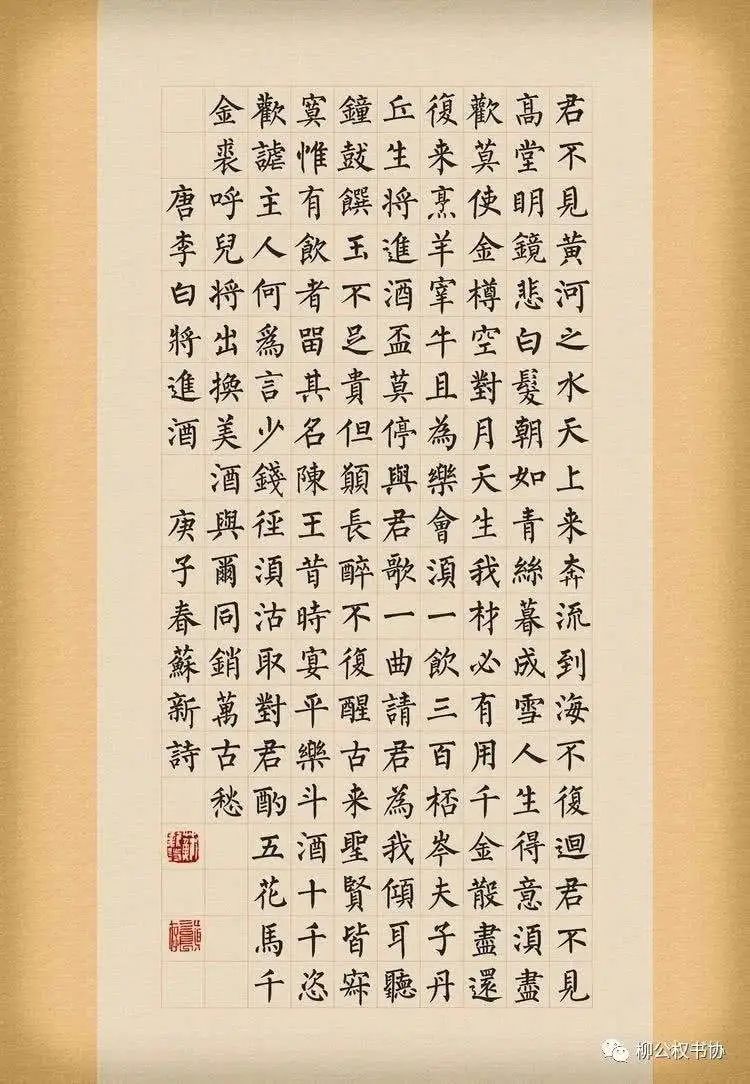 君不見黃河之水天上来奔流到海不復迴君不見
高堂明鏡悲白髮朝如青絲暮成雪人生得意須盡
歡莫使金樽空對月天生我材必有用千金散盡還
復来烹羊宰牛且為樂會須一飲三百桮岑夫子丹
丘生將進酒盃莫停與君歌一曲請君為我傾耳聽
鐘鼓饌玉不足貴但願長醉不復醒古来聖賢皆寂
寞惟有飲者留其名陳王昔時宴平樂斗酒十千恣
歡謔主人何爲言少錢徑須沽取對君酌五花馬千
金裘呼兒将出換美酒與爾同銷萬古愁
唐李白將進酒 庚子春蘇新詩
柳公权书协